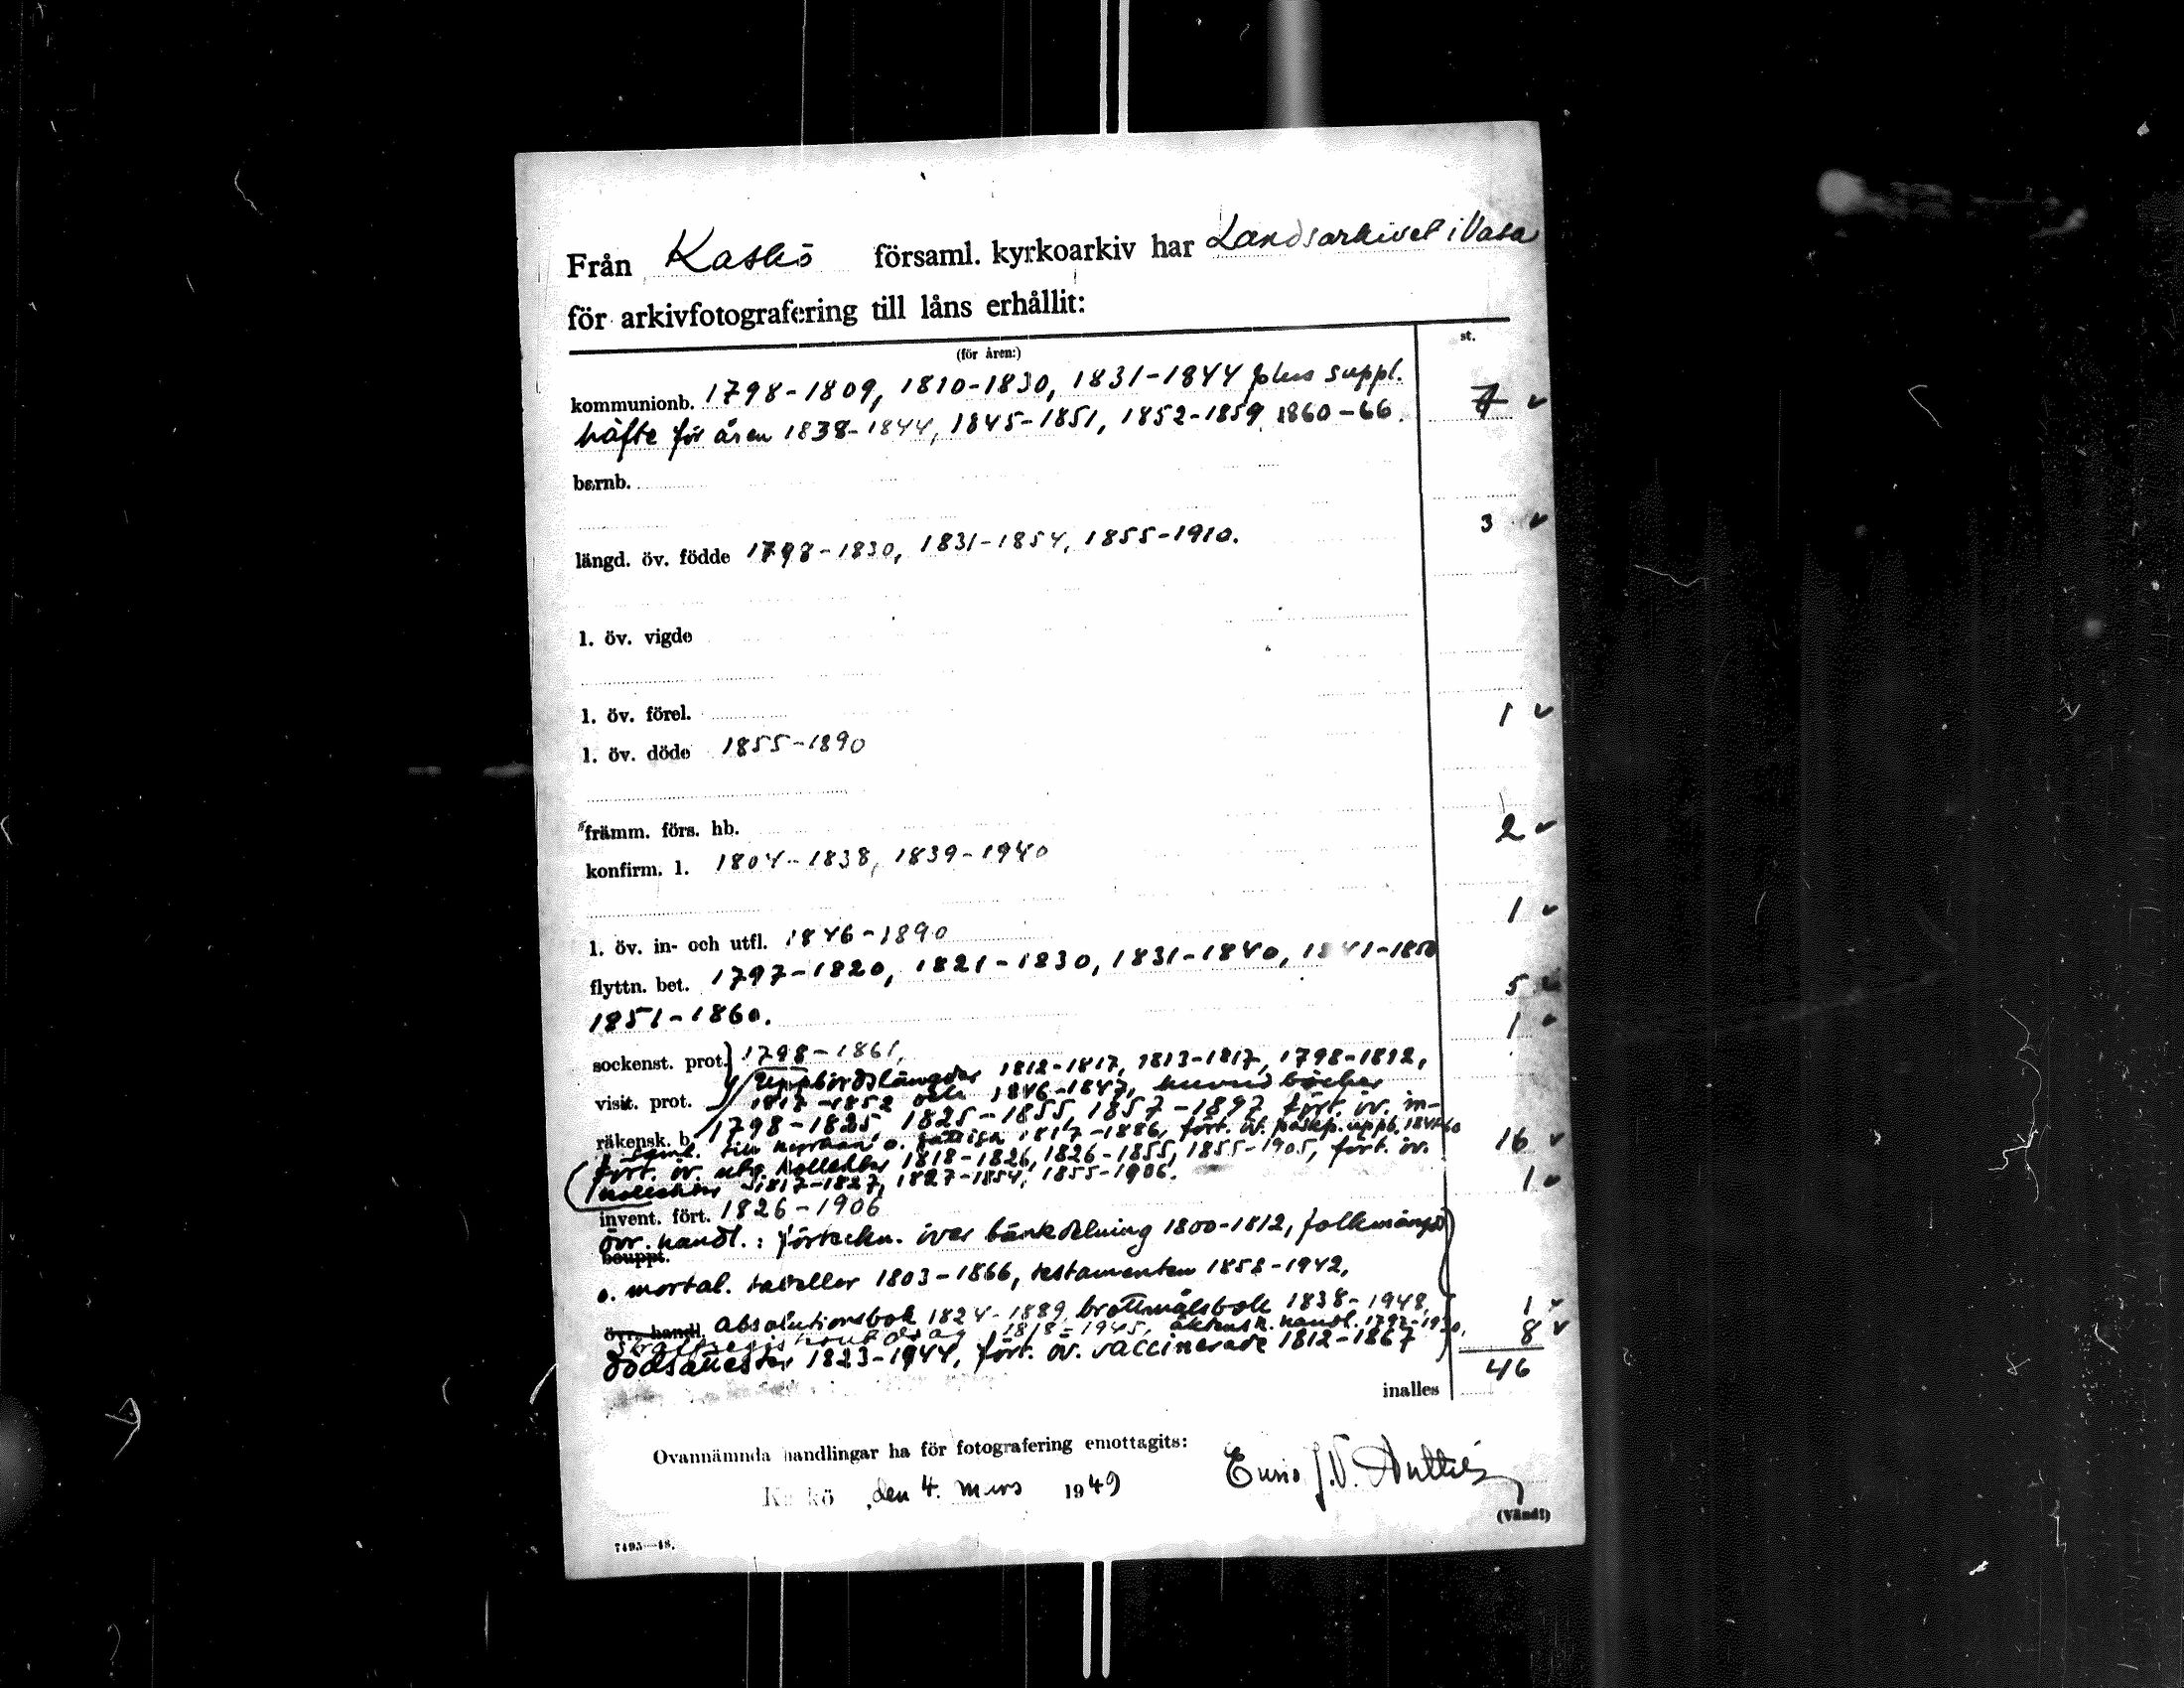 Från Kaskö församl. kyrkoarkiv har Landsarkivet i Vasa
för arkivfotografering till låns erhållit:
(för åren:) st.
kommunionb. 1798-1809, 1810-1830, 1831-1844 plus suppl.
häfte för åren 1838-1844, 1845-1851, 1852-1859, 1860-66. 7 ✓
barnb.
3 ✓
längd. öv. födde 1798-1830, 1831-1854, 1855-1910.
l. öv. vigde
l. öv. förel. 1 ✓
l. öv. döde 1855-1890
främm. förs. hb. 2 ✓
konfirm. l. 1804-1838, 1839-1940
1 ✓
l. öv. in- och utfl. 1846-1890
flyttn. bet. 1797-1820, 1821-1830, 1831-1840, 1841-1850 5 ✓
1851-1860. 1 ✓
sockenst. prot. 1798-1861,
visit. prot. Uppbördslängder 1812-1817, 1813-1817, 1798-1812,
1817-1852 och 1846-1847, huvudböcker
räkensk. b. 1798-1825, 1825-1855, 1857-1897, fört. öv. in-
saml. till kyrkan o. fattiga 1817-1886, fört. öv. påskp. uppb. 16 ✓
fört. öv. utg. kollekter 1818-1826, 1826-1855, 1855-1905, fört. öv.
kollekter 1817-1827, 1827-1854, 1855-1906. 1 ✓
invent. fört. 1826-1906
övr. handl.: förteckn. över bänkdelning 1800-1812, folkmängd
bouppt.
o. mortal. tabeller 1803-1866, testamenten 1858-1942,
övr. handl. Absolutionsbok 1824-1889, brottmålsbok 1838-1948, 1 ✓
1818-1945, äktensk. handl. 1792-1930, 8 ✓
dödsattester 1823-1944, fört. öv. vaccinerade 1812-1867
46
inalles
Ovannämnda handlingar ha för fotografering emottagits:
Kaskö, den 4. mars 1949
J.V.
(Vänd!)
7495—48.